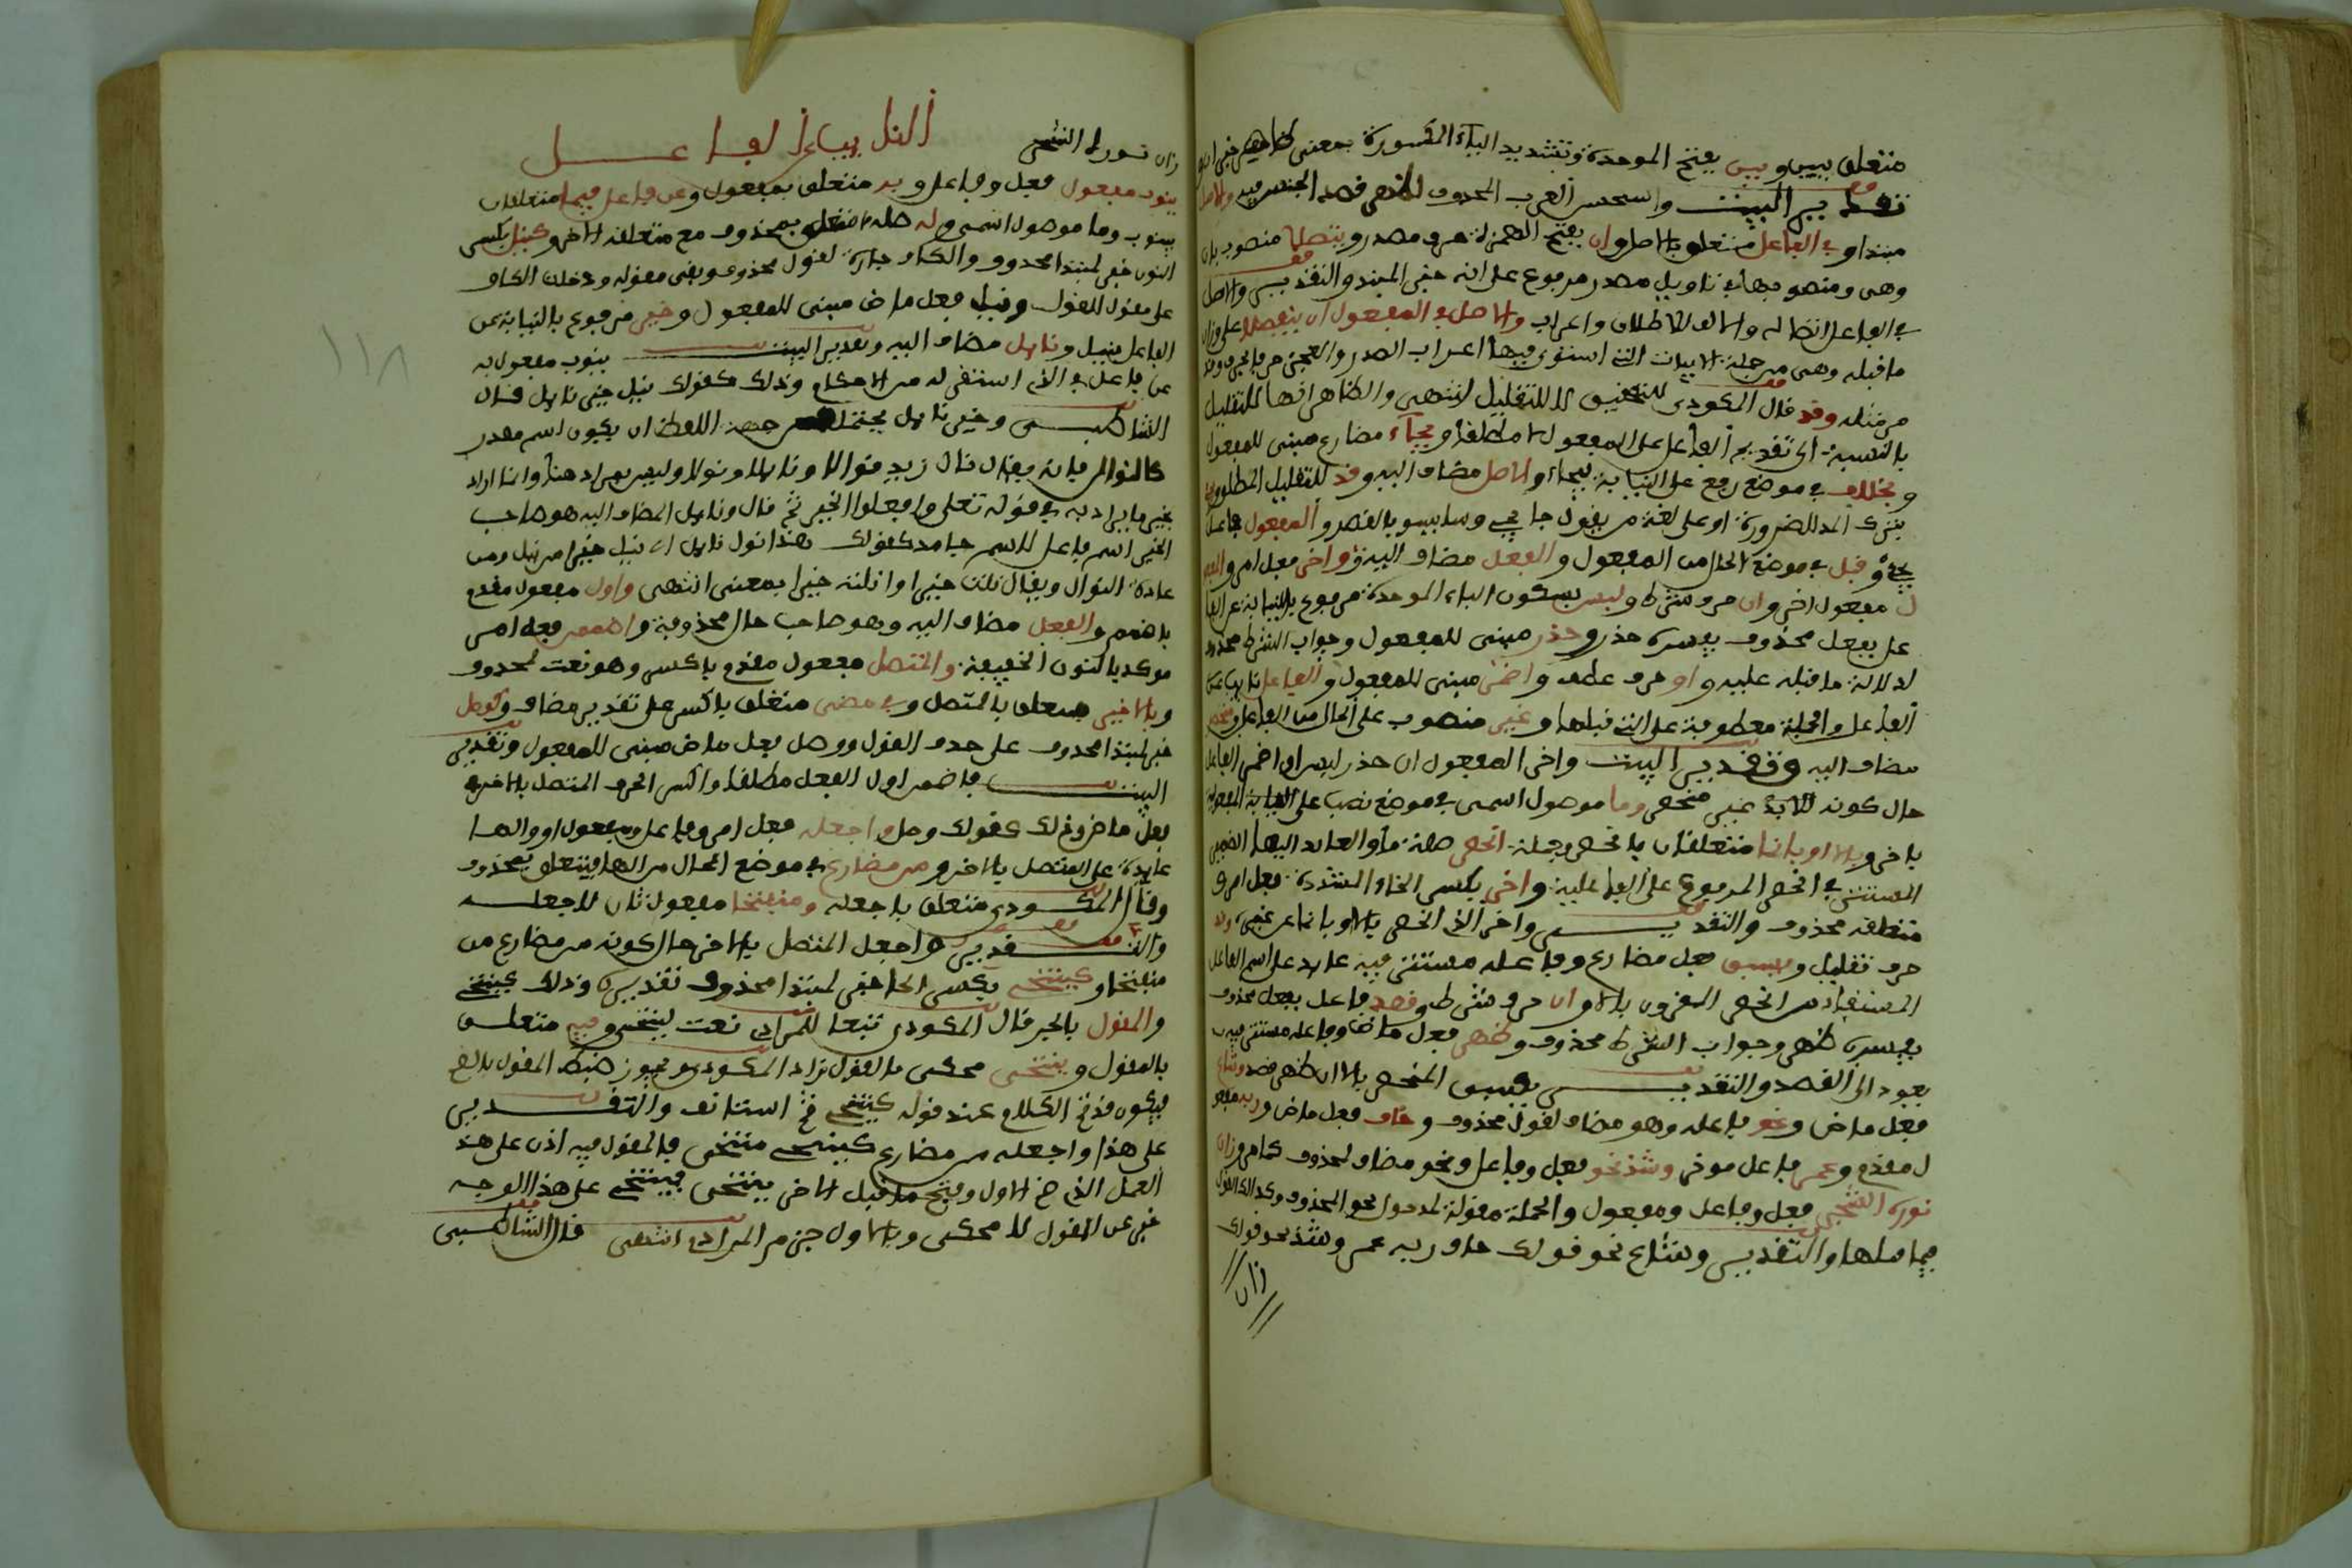 متعلق ببين وبين بفتح الموحدة وتشديد الياء المكسورة بمعنى ظاهر خبر
تقدير البيت واستحسن العرب المحذوف للنص قصد الجنس فيه والاصل
مبتدا وفي الفاعل متعلق بالاصل وان بفتح الهمزة حرف مصدر ويتصلا منصوب بان
وهي ومنصوبها في تاويل مصدر مرفوع على انه خبر المبتدا والتقدير والاصل
في الفاعل اتصاله والالف للاطلاق واعراب والاصل في المفعول ان ينفصلا على وزان
ما قبله وهي من جملة الابيات التي استوى فيها اعراب الصدر والعجز
من مثله وقد قال المكودي للتحقيق لا للتقليل انتهى والظاهر انها للتقليل
بالنسبة الى تقديم الفاعل على المفعول لا مطلقا ويجاء مضارع مبني للمفعول
وبخلاف في موضع رفع على النيابة بيجاء والاصل مضاف اليه وقد للتقليل
بترك المد للضرورة او على لغة من يقول جا يجي وسا يسو بالقصر والمفعول فاعل
يجي وقبل في موضع الحال من المفعول والفعل مضاف اليه واخر فعل امر
ل مفعول اخر وان حرف شرط ولبس بسكون الباء الموحدة مرفوع بالنيابة عن الفا
عل بفعل محذوف يفسره حذر وحذر مبني للمفعول وجواب الشرط محذوف
لدلالة ما قبله عليه واو حرف عطف واضمر مبني للمفعول والفاعل نايب عن
الفاعل والجملة معطوفة على التي قبلها وغير منصوب على الحال من الفاعل ومنحصر
مضاف اليه وتقدير البيت واخر المفعول ان حذر لبس او اضمر الفاعل
حال كونه غير منحصر وما موصول اسمي في موضع نصب على المفعولية
باخر وبالا او بانما متعلقان بانحصر وجملة انحصر صلة ما والعايد اليها الضمير
المستتر في انحصر المرفوع على الفاعلية واخر بكسر الخاء المشددة فعل امر و
متعلقه محذوف والتقدير واخر الذي انحصر بالا او بانما عن غيره وقد
حرف تقليل ويسبق فعل مضارع وفاعله مستتر فيه عايد على اسم الفاعل
المستفاد من انحصر المقرون بالا وان حرف شرط وقصد فاعل بفعل محذوف
يفسره ظهر وجواب الشرط محذوف وظهر فعل ماض وفاعله مستتر فيه
يعود الى القصد والتقدير يسبق المنحصر بالا ان ظهر قصد وشاع
فعل ماض ونحو فاعله وهو مضاف لقول محذوف وخاف فعل ماض وربه مفعو
ل مقدم وعمر فاعل موخر وشذ نحو فعل وفاعل ونحو مضاف لمحذوف كما مر وزان
نوره الشجر فعل وفاعل ومفعول والجملة مقولة لمدخول نحو المحذوف وكذلك القول
فيما قبلها والتقدير وشاع نحو قولك خاف ربه عمر وشذ نحو قولك
زان
زان نوره الشجر النايب عن الفاعل
ينوب مفعول فعل وفاعل وبه متعلق بمفعول وعن فاعل فيما متعلقان
بينوب وما موصول اسمي وله صلة ما متعلق بمحذوف مع متعلقه الاخر وكنيل بكسر
النون خبر لمبتدا محذوف والكاف جارة لقول محذوف وبقي مقوله ودخلت الكاف
على مقول القول ونيل فعل ماض مبني للمفعول وخير مرفوع بالنيابة عن
الفاعل بنيل ونايل مضاف اليه وتقدير البيت ينوب مفعول به
عن فاعل في الذي استقر له من الاحكام وذلك كقولك نيل خير نايل قال
الشاطبي وخير نايل يحتمل من جهة اللفظ ان يكون اسم مصدر
كالنوال فانه يقال نال زيد نوالا ونايلا ونولا وليس بمراد هنا وانما اراد
بخير ما يراد به في قوله تعلى وافعلوا الخير ثم قال ونايل المضاف اليه هو صاحب
الخير اسم فاعل لاسم جامد كقولك هذا نول نايل اي نيل خيرا من نيل ومن
عادة النوال ويقال نلت خيرا وانلته خيرا بمعنى انتهى واول مفعول مقدم
باضمم والفعل مضاف اليه وهو صاحب حال محذوفة واضممن فعل امر
موكد بالنون الخفيفة والمتصل مفعول مقدم باكسر وهو نعت لمحذوف
وبالاخر متعلق بالمتصل وفي مضي متعلق باكسر على تقدير مضاف وكوصل
خبر لمبتدا محذوف على حذف القول ووصل فعل ماض مبني للمفعول وتقدير
البيت فاضمم اول الفعل مطلقا واكسر الحرف المتصل بالاخر في
فعل ماض وذلك كقولك وصل واجعله فعل امر وفاعل ومفعول اول والهاء
عايدة على المتصل بالاخر ومن مضارع في موضع الحال من الهاء فيتعلق بمحذوف
وقال المكودي متعلق باجعله ومنفتحا مفعول ثان لاجعله
والتقدير واجعل المتصل بالاخر حال كونه من مضارع من
منفتحا وكينتحي بكسر الحاء خبر لمبتدا محذوف تقديره وذلك كينتحي
والمقول بالجر قال المكودي تبعا للمرادي نعت لينتحي وفيه متعلق
بالمقول وينتحى محكي بالقول زاد المكودي ويجوز ضبط المقول بالرفع
فيكون قد تم الكلام عند قوله كينتحي ثم استانف والتقدير
على هذا واجعله من مضارع كينتحي منفتحا فالمقول فيه اذن على هذا
العمل الذي ضم الاول وفتح ما قبل الاخر ينتحى فينتحى على هذا الوجه
خبر عن المقول لا محكي وبالاول جزم المرادي انتهى قال الشاطبي
١١٨